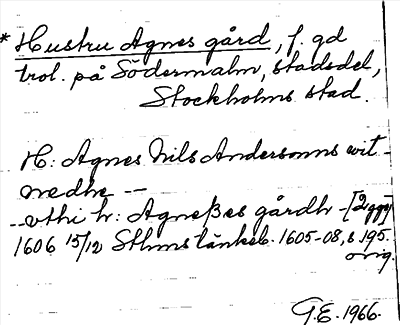 * Hustru Agnes gård, f. gd
trol. på Södermalm, stadsdel,
Stockholms stad.
H: Agnes Nils Andersonns wit-
nedhe --
--vthi h: Agneßes gårdh - [2 ggr]
1606 15/12 Sthms tänkeb. 1605-08, s 195.
orig.
G.E. 1966.